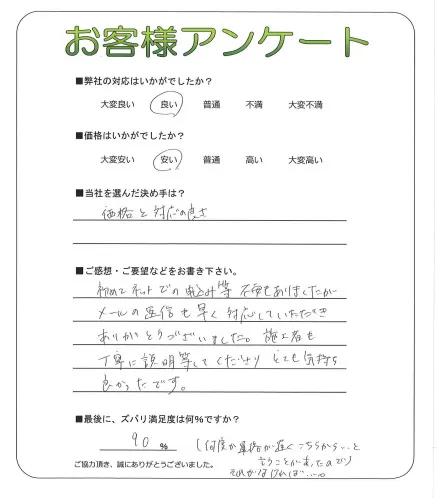 お客様アンケート
■弊社の対応はいかがでしたか?
大変良い 良い 普通 不満 大変不満
■価格はいかがでしたか?
大変安い 安い 普通 高い 大変高い
■当社を選んだ決め手は?
価格と対応の良さ
■ご感想・ご要望などをお書き下さい。
初めてネットでの申込み等 不安もありましたが
メールの返信も早く対応していただき
ありがとうございました。施工者も
丁寧に説明等してくださり とても気持ち
良かったです。
■最後に、ズバリ満足度は何%ですか?
90 % (何度か連絡が遅くこちらから
言うことがあったので)
ご協力頂き、誠にありがとうございました。 それがなければ…。